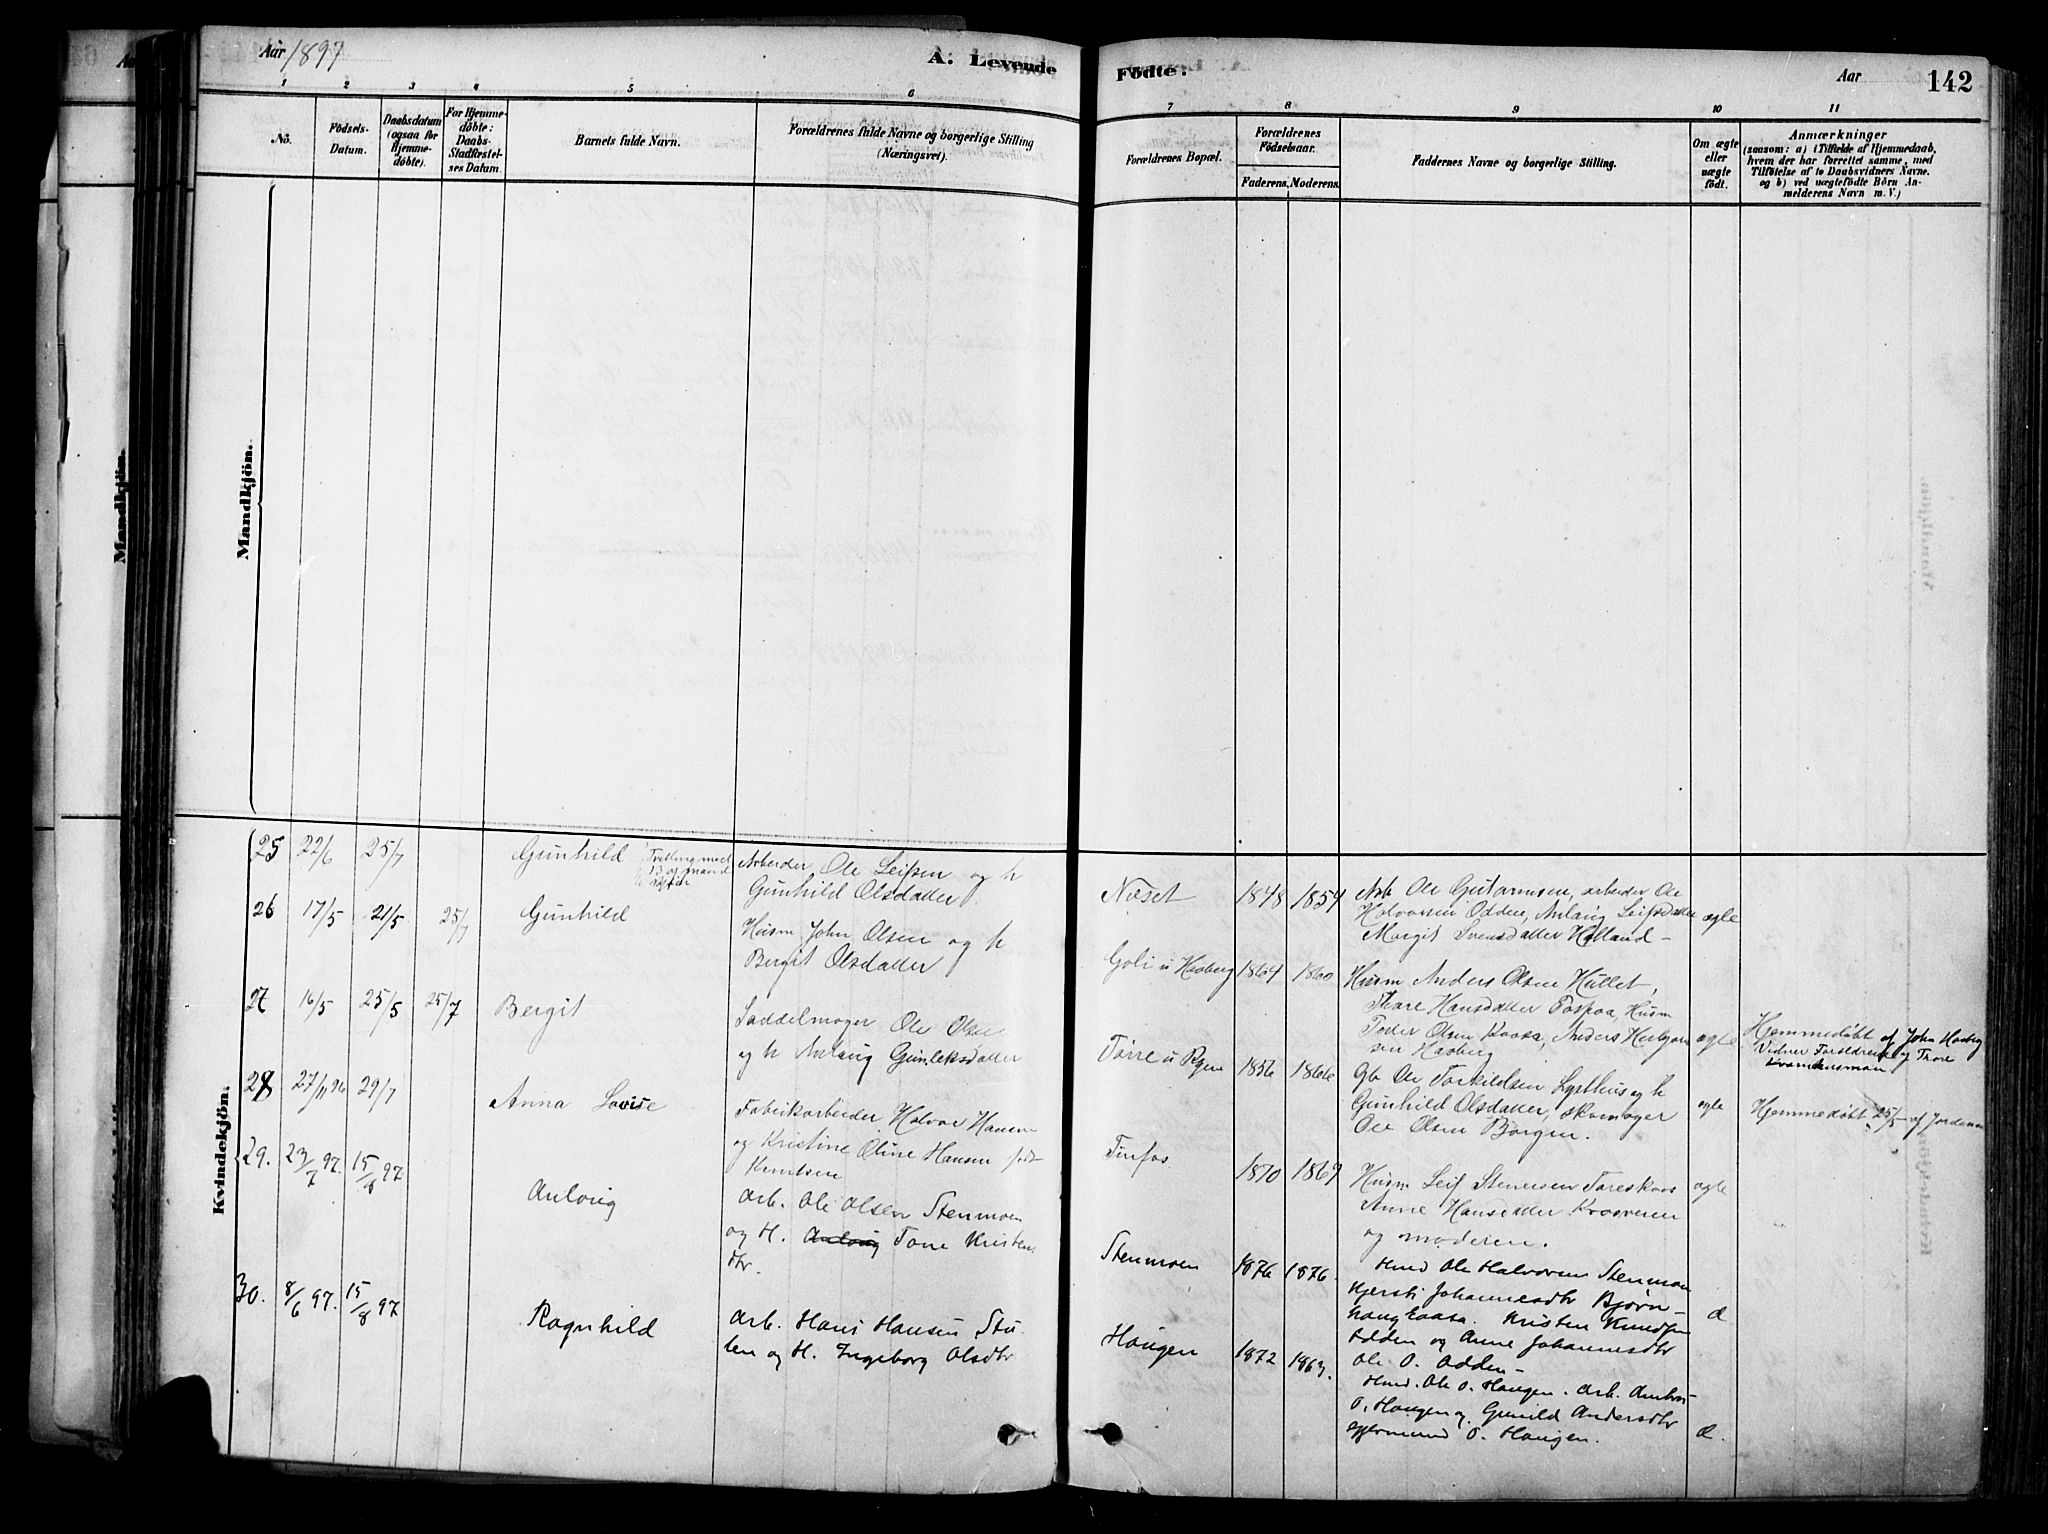 Aar 1897
A: Levende
Födte:
Aar
142
1 2 3 4 5 6 7 8 9 10 11
No.
Födsels-
Datum.
Daabsdatum
(ogsaa for
Hjemme-
döbte).
For Hjemme-
döbte:
Daabs-
Stadfæstel-
ses Datum.
Barnets fulde Navn.
Forældrenes fulde Navne og borgerlige Stilling
(Næringsvei).
Forældrenes Bopæl.
Forældrenes
Födselsaar.
Faderens. Moderens.
Faddernes Navne og borgerlige Stilling.
Om ægte
eller
uægte
födt.
Anmærkninger
(saasom: a) i Tilfælde af Hjemmedaab,
hvem der har forrettet samme, med
Tilföielse af to Daabsvidners Navne.
og b) ved uægtefödte Börn An-
melderens Navn m. V.)
Mandkjön.
Mandkjön.
Kvindekjön.
25 22/6 25/7 Gunhild
Tvilling med
13 og mand
Arbeider Ole Leifsen og h
Gunhild Olsdatter
Næset 1848 1854
Arb Ole Gutormsen, arbeider Ole
Halvorsen Odden, Anlaug Leifsdatter
Margit Svensdatter Holland -
ægte
26 17/5 21/5 25/7 Gunhild
Husm John Olsen og h
Bergit Olsdatter
Goli u Haaberg 1864 1860
Husm Anders Olsen Hullet,
Thore Hansdatter Husm
Peder Olsen Anders Herbjørn
sen Haaberg
ægte
Hjemmedøbt af John Haaberg
Vidner Forældrene og Thore
27 16/5 25/5 25/7 Bergit
Saddelmager Ole Olsen
og h Anlaug Gunleksdatter
1856 1866
Gb Ole Torkildsen Lysthus og h
Gunhild Olsdatter, skomager
Ole Olsen Borgen.
ægte
Hjemmedøbt 25/5 af Jordemor
28 27/11 96 29/7 Anna Lovise
Fabrikarbeider Halvor Hansen
og Kristine Oline Hansen født
Knudsen
Tinfos 1870 1869
Husm Leif Stenersen
Anne Hansdatter
og moderen.
ægte
29. 23/7 97. 15/8 97. Anlaug
Arb. Ole Olsen Stenmoen
og H. Anlaug Tone Kristens
dtr.
Stenmoen 1876 1876.
Hmd Ole Halvorsen Stenmoen
Kjersti Johannesdtr Bjørn-
haug Kaasa. Kristen Knudsen
Odden og Anne Johannesdtr
Ole O. Odden -
30. 8/6 97. 15/8 97 Ragnhild
Arb. Hans Hansen Stu-
len og H. Ingeborg Olsdtr
Haugen 1872 1863.
Hmd. Ole O. Haugen. Arb.
O. Haugen og Gunild Andersdtr
Gjermund O. Haugen.